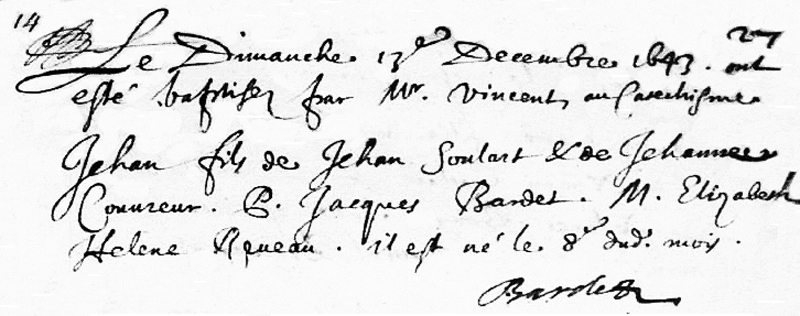 14
Le Dimanche 13e Decembre 1643. ont 27
esté baptisez par Mr. Vincent, au Catechisme
Jehan fils de Jehan Soulart & de Jehanne
Couureur. P. Jacques Bardet. M. Elizabeth
Helene Riueau. il est né le 8e dud. mois.
Bardet